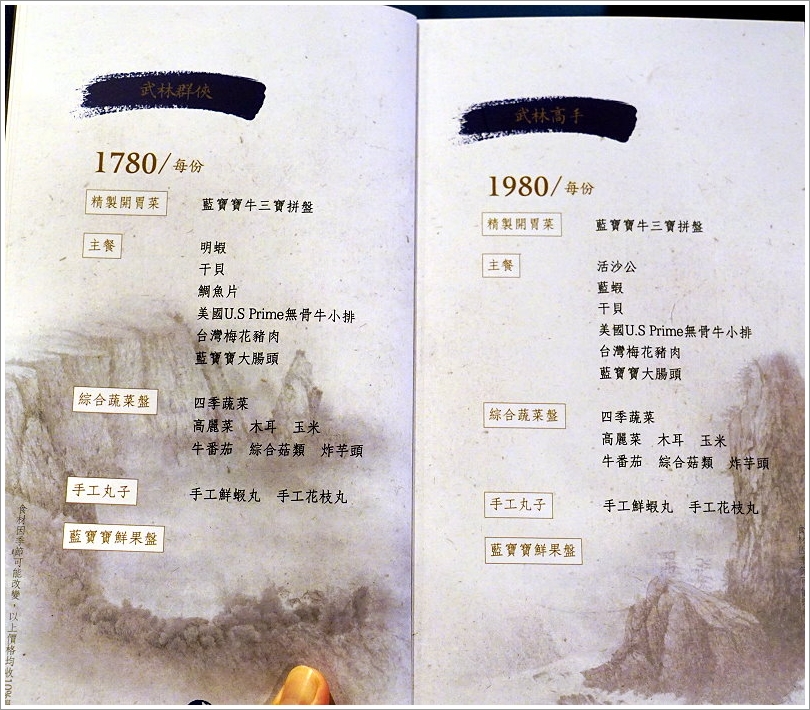 武林群俠
1780/每份
精製開胃菜 藍寶寶牛三寶拼盤
主餐 明蝦
干貝
鯛魚片
美國U.S Prime無骨牛小排
台灣梅花豬肉
藍寶寶大腸頭
綜合蔬菜盤 四季蔬菜
高麗菜 木耳 玉米
牛番茄 綜合菇類 炸芋頭
手工丸子 手工鮮蝦丸 手工花枝丸
藍寶寶鮮果盤
食材因季節可能改變，以上價格均收10%
武林高手
1980/每份
精製開胃菜 藍寶寶牛三寶拼盤
主餐 活沙公
藍蝦
干貝
美國U.S Prime無骨牛小排
台灣梅花豬肉
藍寶寶大腸頭
綜合蔬菜盤 四季蔬菜
高麗菜 木耳 玉米
牛番茄 綜合菇類 炸芋頭
手工丸子 手工鮮蝦丸 手工花枝丸
藍寶寶鮮果盤